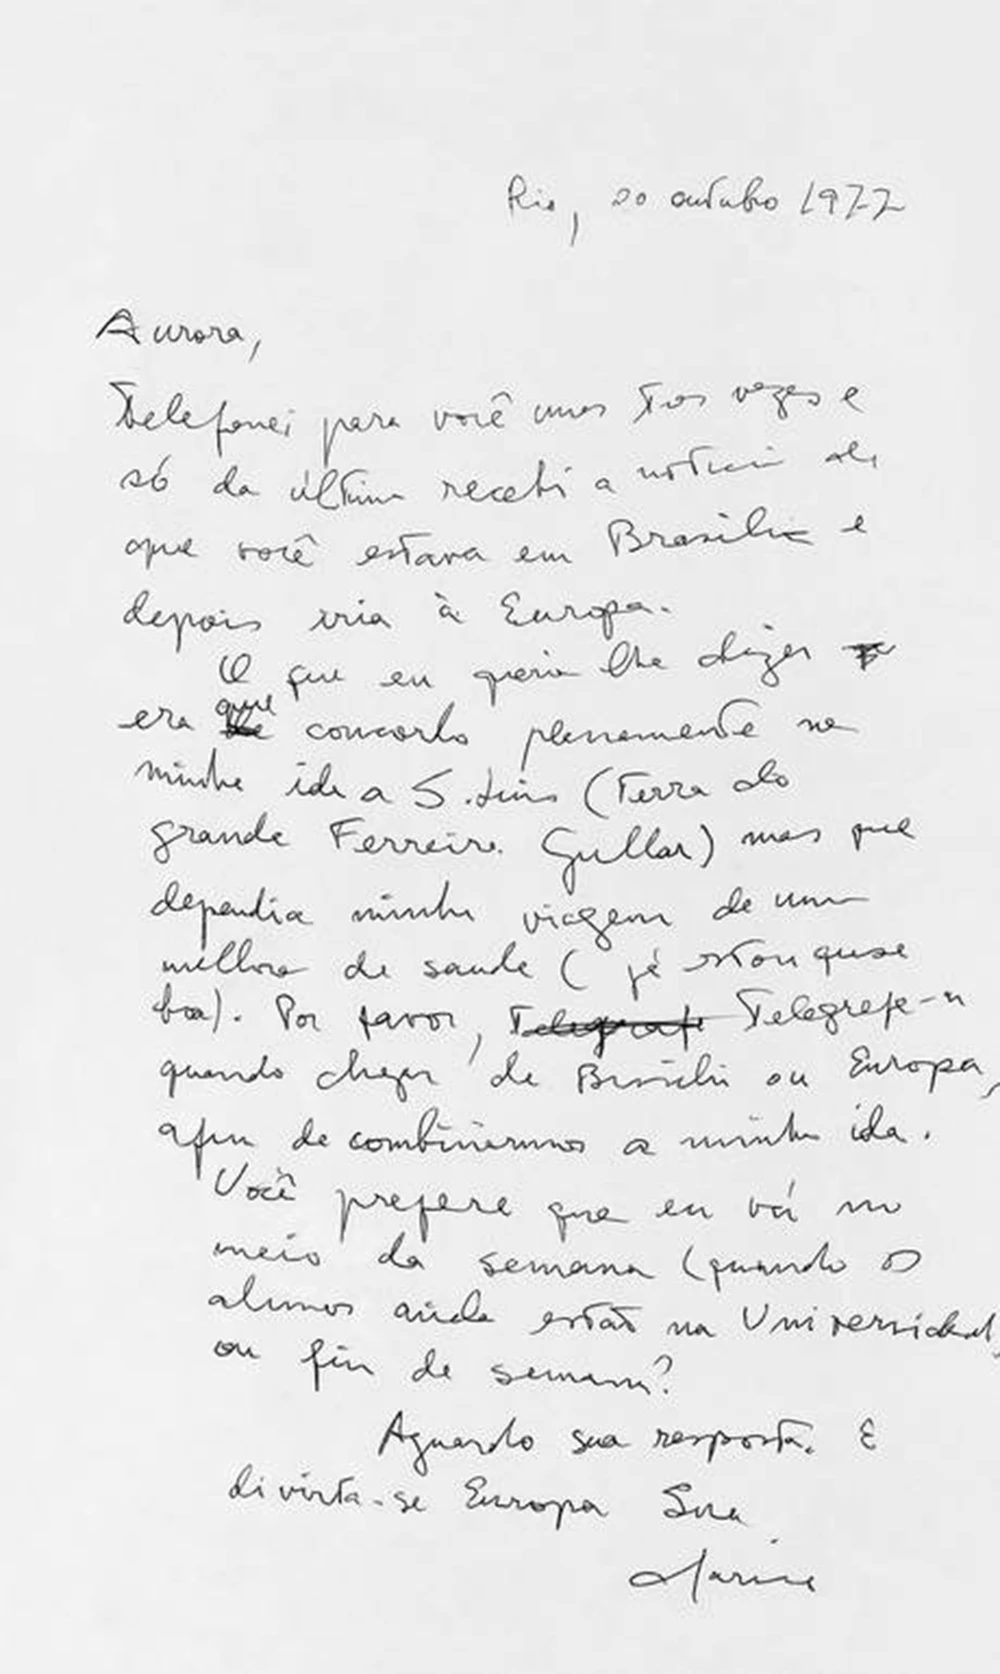 Rio, 20 outubro 1977
Aurora,
Telefonei para você umas três vezes e
só da última recebi a notícia de
que você estava em Brasília e
depois iria à Europa.
O que eu queria lhe dizer
era que concordo plenamente na
minha ida a S. Luis (Terra do
grande Ferreira Gullar) mas que
dependia minha viagem de uma
melhora de saude (já estou quase
boa). Por favor, Telegrafe Telegrafe-m
quando chegar de Brasília ou Europa,
afim de combinarmos a minha ida.
Você prefere que eu vá no
meio da semana (quando os
alunos ainda estão na Universidade,
ou fim de semana?
Aguardo sua resposta. E
divirta-se Europa Sua
Clarice